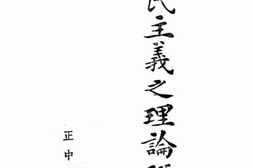 民主義之理論
正中